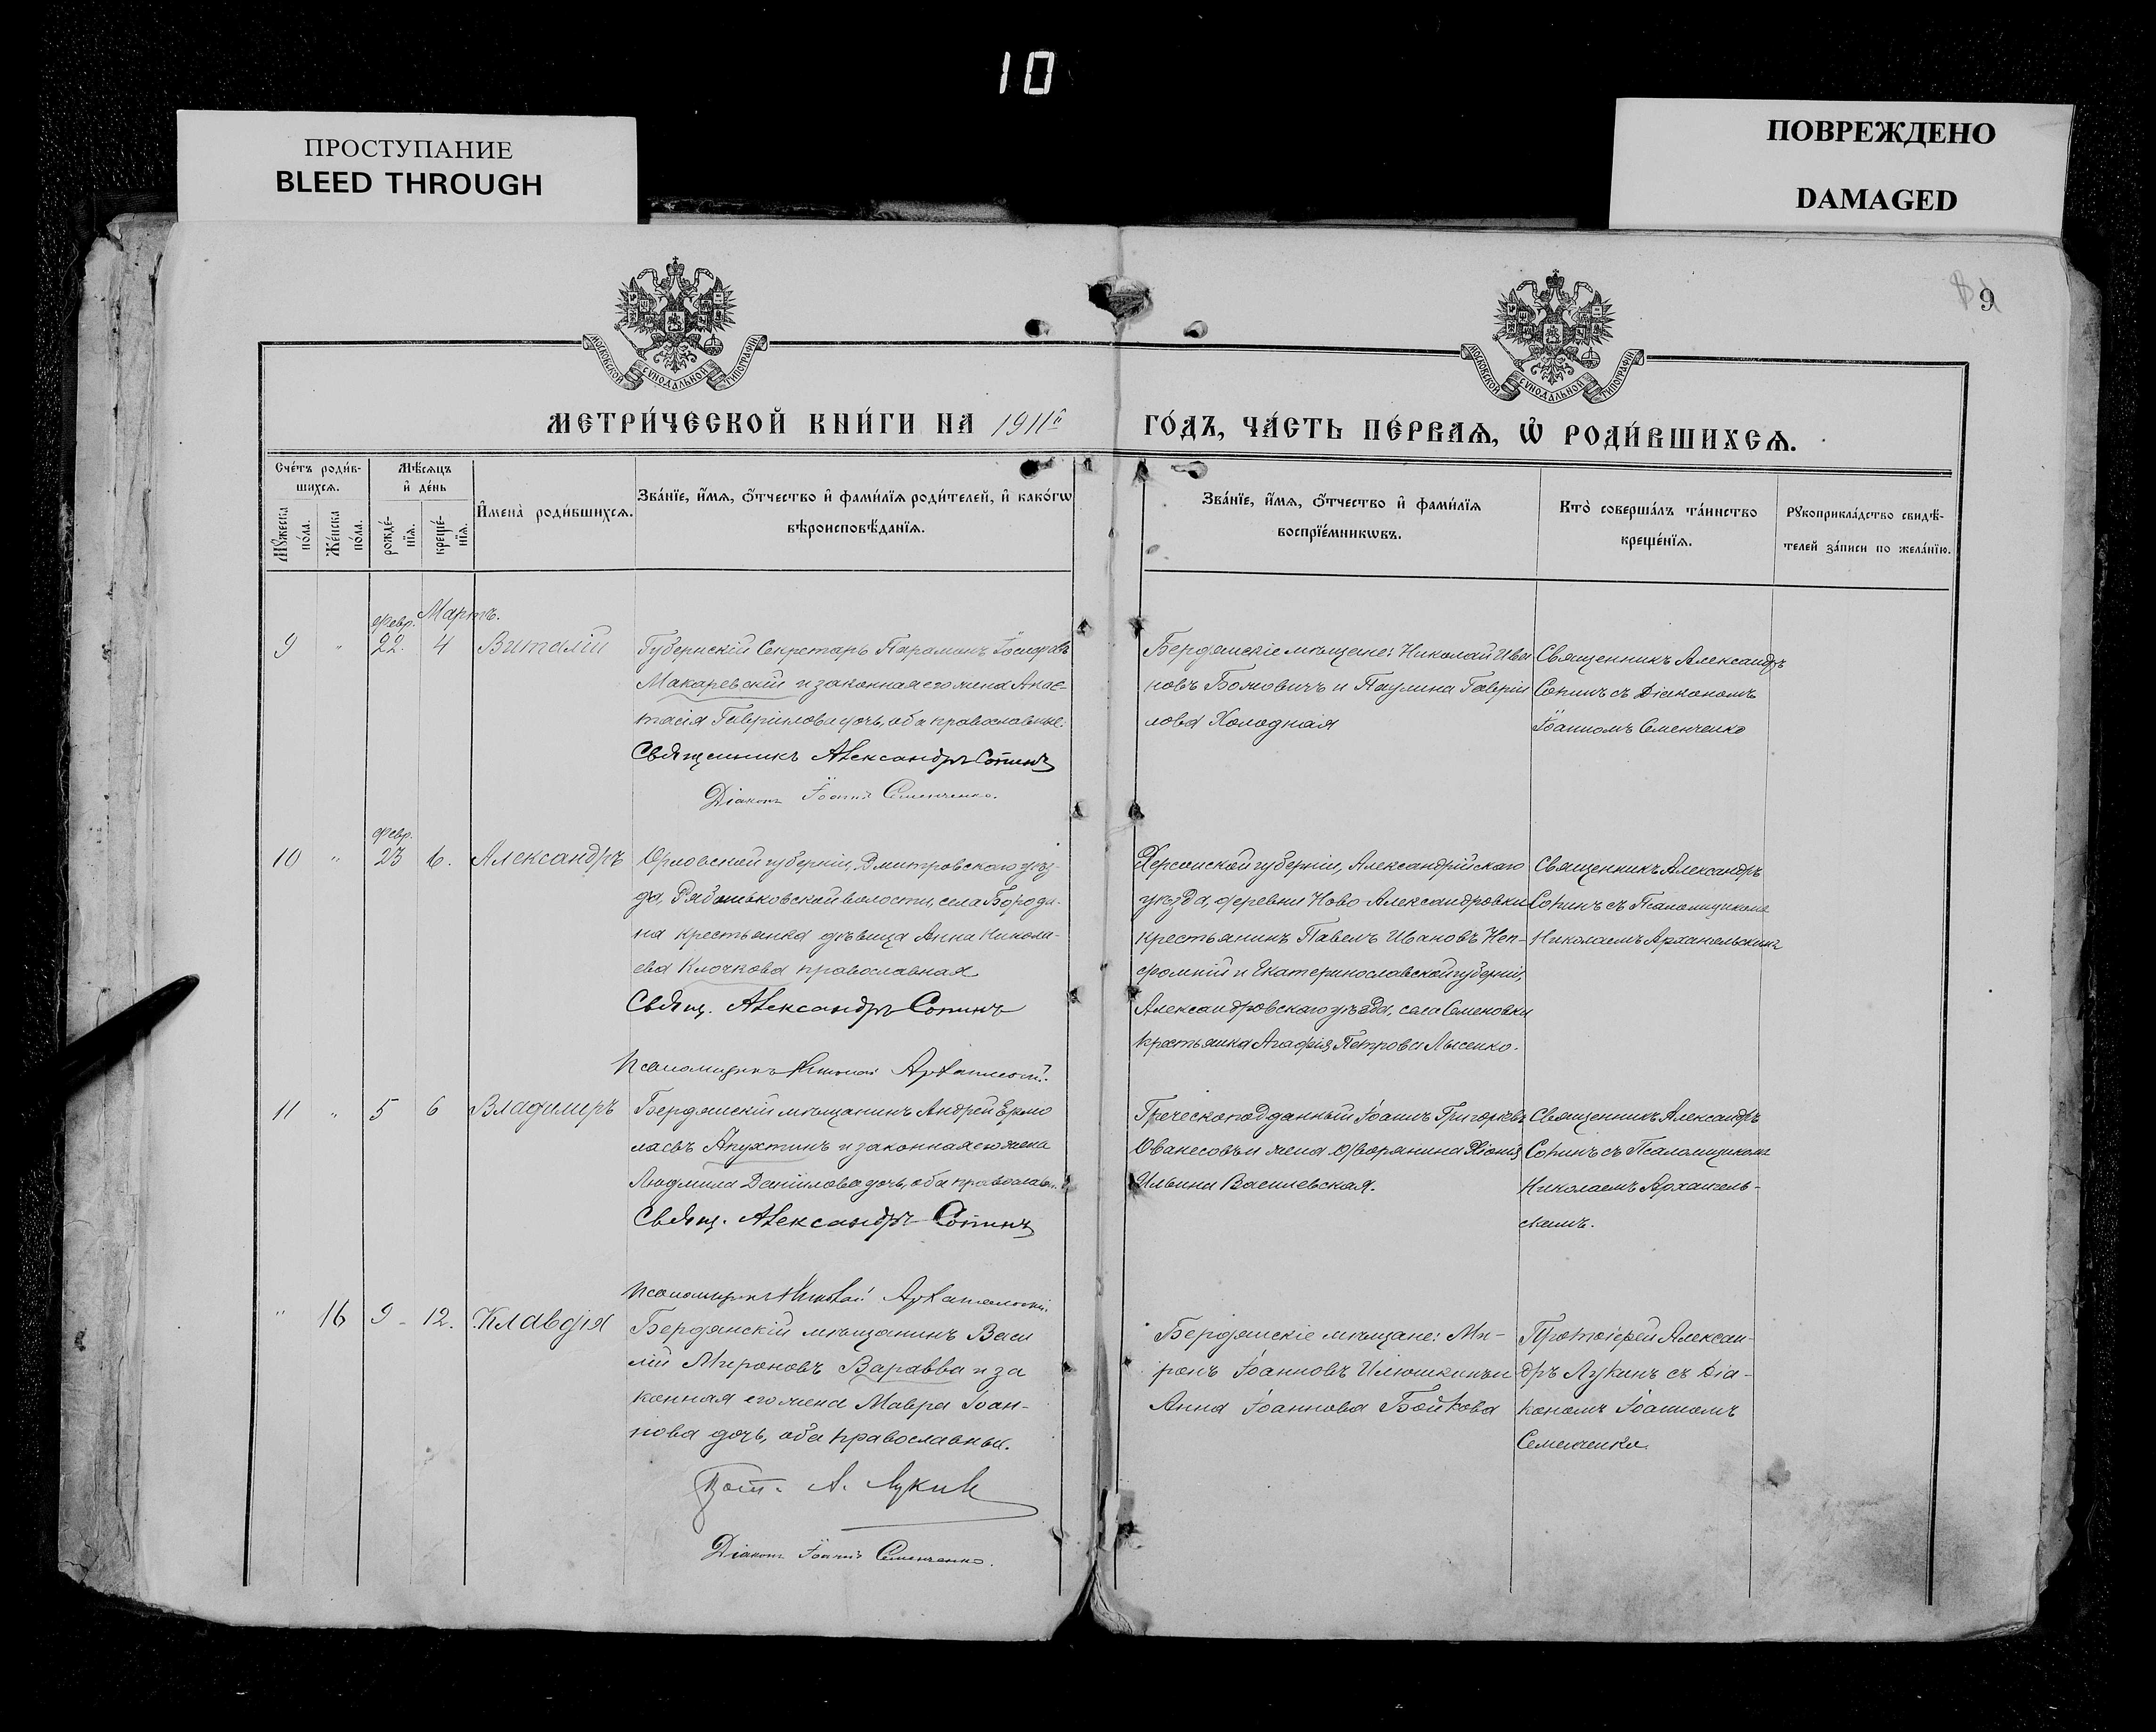 10
ПРОСТУПАНИЕ
BLEED THROUGH
ПОВРЕЖДЕНО
DAMAGED
9
МОСКОВСКОЙ СѴНОДАЛЬНОЙ ТИПОГРАФІИ
МОСКОВСКОЙ СѴНОДАЛЬНОЙ ТИПОГРАФІИ
МЕТРИ́ЧЕСКОЙ КНИ́ГИ НА 1911й ГО́ДЪ, ЧА́СТЬ ПЕ́РВАѦ, Ѡ҆ РОДИ́ВШИХСѦ.
Сче́тъ роди́в-
шихсѧ.
Мꙋжеска по́ла.
Же́нска по́ла.
Мѣ́сѧцъ
и҆ де́нь
рожде́-
нїѧ.
креще́-
нїѧ.
И҆мена̀ роди́вшихсѧ.
Зва́нїе, и҆́мѧ, ѻ҆́тчество и҆ фами́лїѧ роди́телей, и҆ како́гѡ
вѣроисповѣ́данїѧ.
Зва́нїе, и҆́мѧ, ѻ҆́тчество и҆ фами́лїѧ
воспрїе́мникѡвъ.
Кто̀ соверша́лъ та́инство
креще́нїѧ.
Рꙋкоприкла́дство свидѣ́-
телей за́писи по жела́нїю.
Февр. Мартъ.
9 " 22. 4 Виталій
Губернскій Секретарь Парамонъ
Макаревскій и законная его жена Анас-
тасія Гавріилова дочь, оба православные.
Священникъ Александръ Сопинъ
Діаконъ Іоаннъ Семенченко.
Бердянскіе мѣщане: Николай Ива
новъ Божовичъ и Паулина Гавріи
лова Холодная
Священникъ Александръ
Сопинъ съ Діакономъ
Іоанномъ Семенченко
Февр.
10 " 23 6. Александръ
Орловской губерніи, Дмитровскаго уѣз-
да, волости, села Бороди-
на крестьянка дѣвица Анна Никола-
ева Клочкова православная
Свящ. Александръ Сопинъ
Псаломщикъ Николай Архангельскій.
Херсонской губерніи, Александрійскаго
уѣзда, деревни Ново-Александровки
крестьянинъ Павелъ Ивановъ
и Екатеринославской губерніи,
Александровскаго уѣзда, села Семеновки
крестьянка Агафія Петрова Лысенко.
Священникъ Александръ
Сопинъ съ Псаломщикомъ
Николаемъ Архангельскимъ
11 " 5 6 Владимиръ
Бердянскій мѣщанинъ Андрей Ермо
лаевъ Апухтинъ и законная его жена
Людмила Даніилова дочь, оба православн.
Свящ. Александръ Сопинъ
Псаломщикъ Николай Архангельскій.
Греческоподданный Іоаннъ Григорьевъ
Ованесовъ и жена дворянина
Ильина Василевская.
Священникъ Александръ
Сопинъ съ Псаломщикомъ
Николаемъ Архангель-
скимъ.
" 16 9 - 12. Клавдія
Бердянскій мѣщанинъ Васи
лій Мироновъ Варавва и за
конная его жена Мавра Іоан-
нова дочь, оба православные.
Прот. А. Лукин
Діаконъ Іоаннъ Семенченко.
Бердянскіе мѣщане: Ми-
ронъ Іоанновъ Илюшкинъ и
Анна Іоаннова Бойкова
Протоіерей Алексан-
дръ Лукинъ съ Діа-
кономъ Іоанномъ
Семенченко.